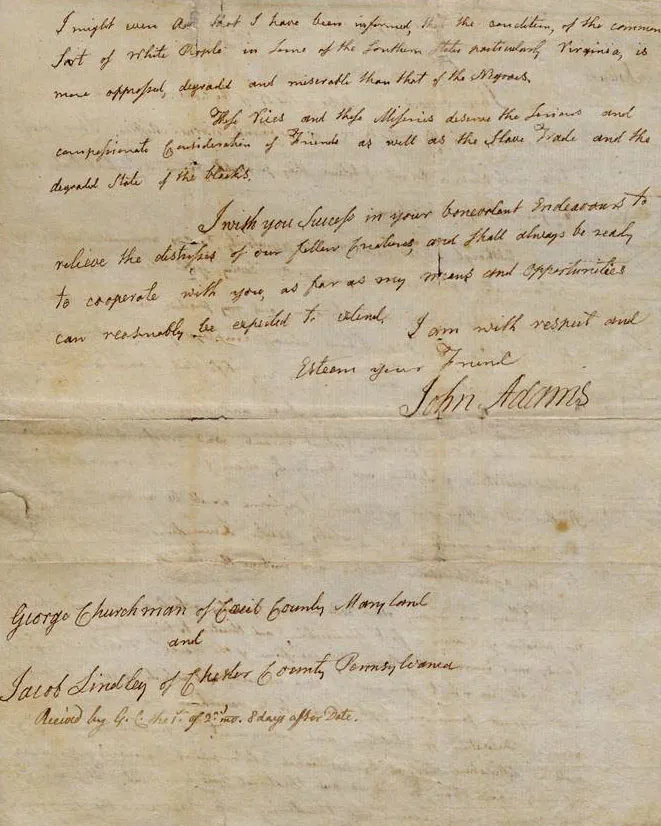 I might even say that I have been informed, that the condition, of the common
Sort of White People in some of the Southern States particularly Virginia, is
more oppressed, degraded and miserable than that of the Negroes.
These Vices and these Miseries deserve the serious and
compassionate Consideration of Friends as well as the Slave Trade and the
degraded State of the blacks.
I wish you Success in your benevolent Endeavours to
relieve the distresses of our fellow Creatures, and shall always be ready
to cooperate with you, as far as my means and Opportunities
can reasonably be expected to extend. I am with respect and
Esteem your Friend
John Adams
George Churchman of Cecil County Maryland
and
Jacob Lindley of Chester County Pennsylvania
Received by G. C. the 1st. of 2nd. mo. 8 days after Date.